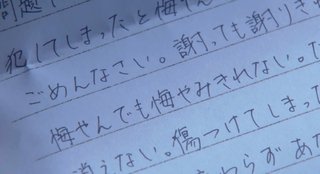 犯してしまったと悔やん
ごめんなさい。謝っても謝りき
悔やんでも悔やみきれない。
ない。傷つけてしまった
わらずあな